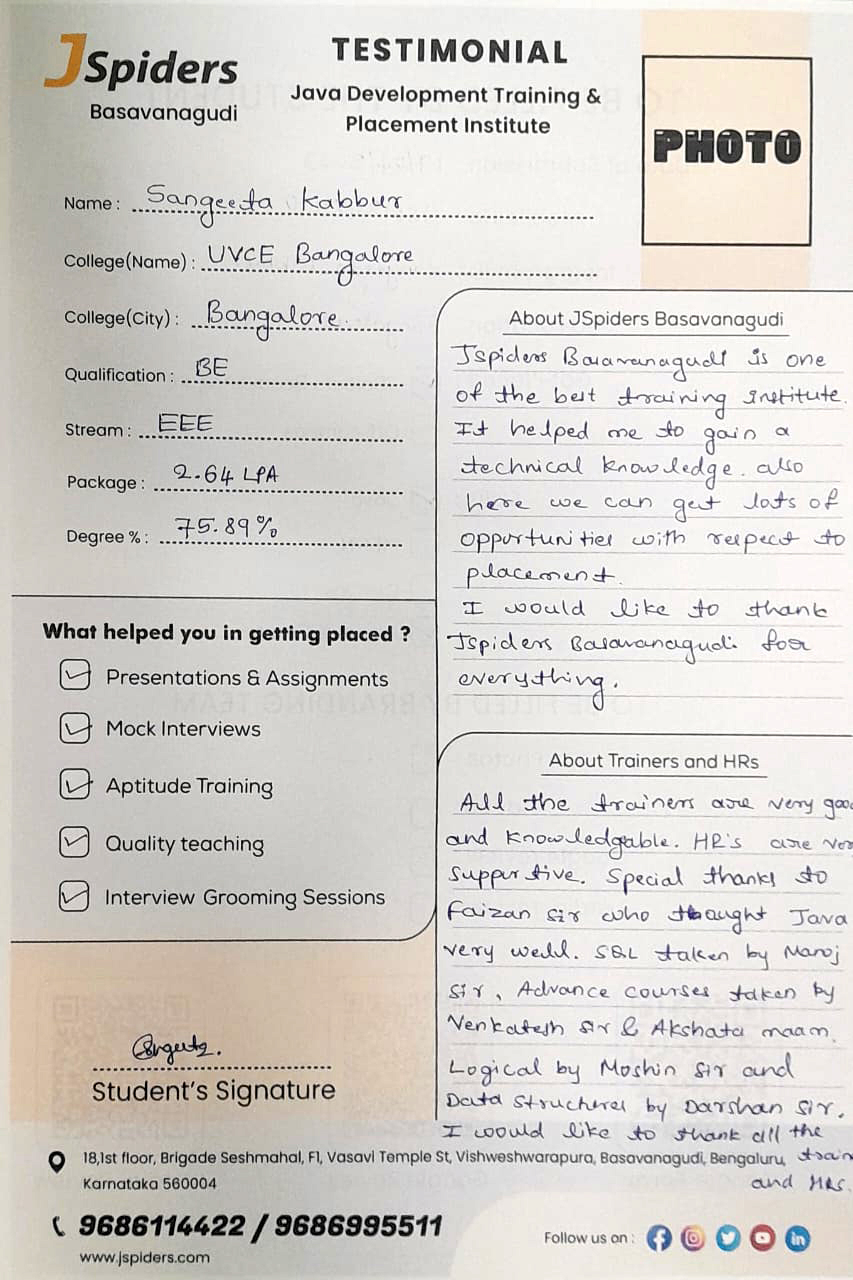 JSpiders
Basavanagudi
TESTIMONIAL
Java Development Training &
Placement Institute
PHOTO
Name : Sangeeta Kabbur
College(Name) : UVCE Bangalore
College(City) : Bangalore.
Qualification : BE
Stream : EEE
Package : 2.64 LPA
Degree % : 75.89%
What helped you in getting placed ?
Presentations & Assignments
Mock Interviews
Aptitude Training
Quality teaching
Interview Grooming Sessions
About JSpiders Basavanagudi
Jspiders Basavanagudi is one
of the best training institute.
It helped me to gain a
technical knowledge. also
here we can get lots of
opportunities with respect to
placement.
I would like to thank
Jspiders Basavanagudi for
everything.
About Trainers and HRs
All the trainers are very goo
and knowledgable. HR's are ver
supportive. Special thanks to
Faizan sir who thought Java
very well. SQL taken by Manoj
sir, Advance courses taken by
Venkatesh sir & Akshata maam.
Logical by Moshin sir and
Data structures by Darshan sir.
I would like to thank all the
train
and HRs.
Student's Signature
18,1st floor, Brigade Seshmahal, F1, Vasavi Temple St, Vishweshwarapura, Basavanagudi, Bengaluru,
Karnataka 560004
9686114422 / 9686995511
www.jspiders.com
Follow us on :